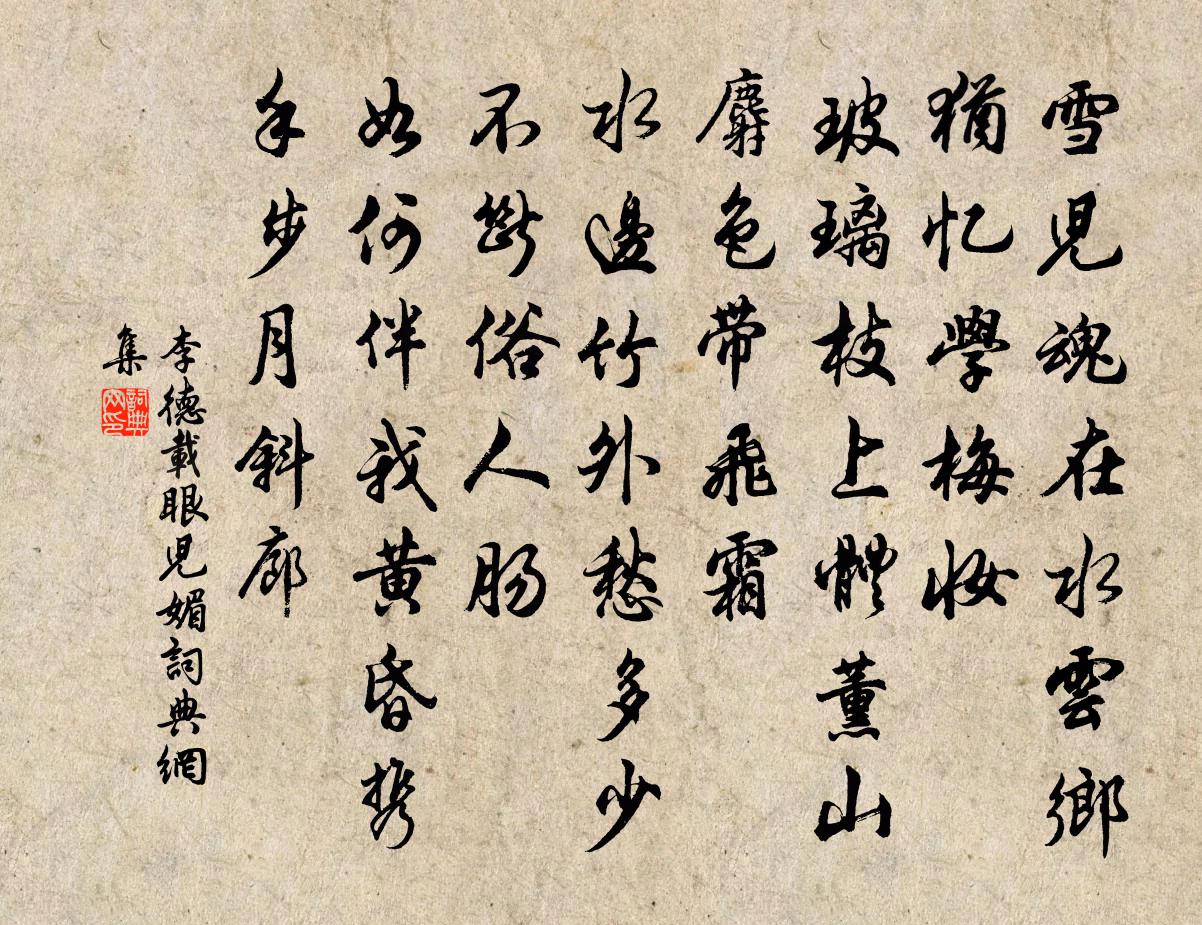 雪児魂在水雲鄉
猶忆學梅妝
玻璃枝上體薰山
麝色带飛霜
水邊竹外愁多少
不斷俗人肠
如何伴我黄昏携
手步月斜廊
李德載眼児媚詞典網
集
詞典網印